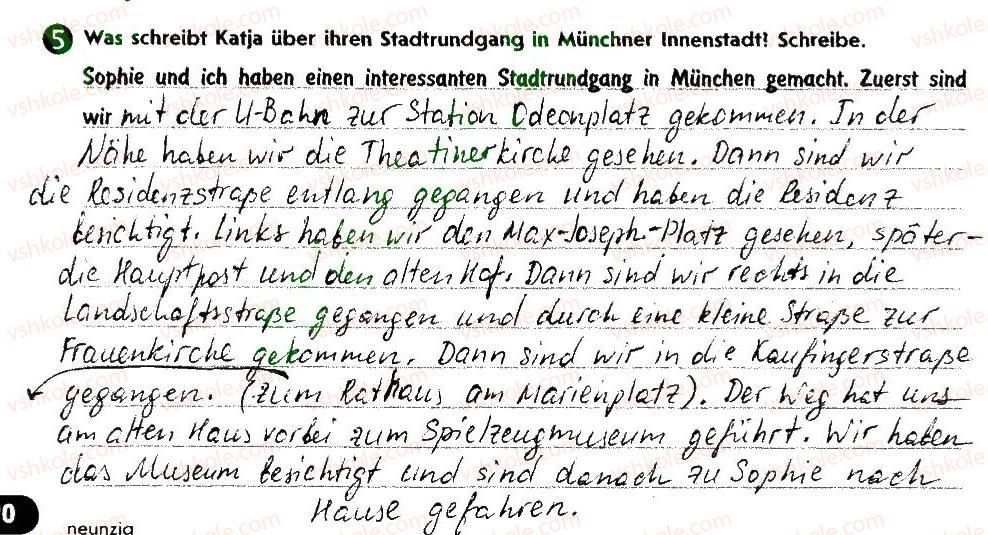 5 Was schreibt Katja über ihren Stadtrundgang in Münchner Innenstadt? Schreibe.
Sophie und ich haben einen interessanten Stadtrundgang in München gemacht. Zuerst sind
wir mit der U-Bahn zur Station Odeonplatz gekommen. In der
Nähe haben wir die Theatinerkirche gesehen. Dann sind wir
die Residenzstraße entlang gegangen und haben die Residenz
besichtigt. Links haben wir den Max-Joseph-Platz gesehen, später-
die Hauptpost und den alten Hof. Dann sind wir rechts in die
Landschaftsstraße gegangen und durch eine kleine Straße zur
Frauenkirche gekommen. Dann sind wir in die Kaufingerstraße
gegangen. (zum Rathaus am Marienplatz). Der Weg hat uns
am alten Haus vorbei zum Spielzeugmuseum geführt. Wir haben
das Museum besichtigt und sind danach zu Sophie nach
Hause gefahren.
0
neunzig